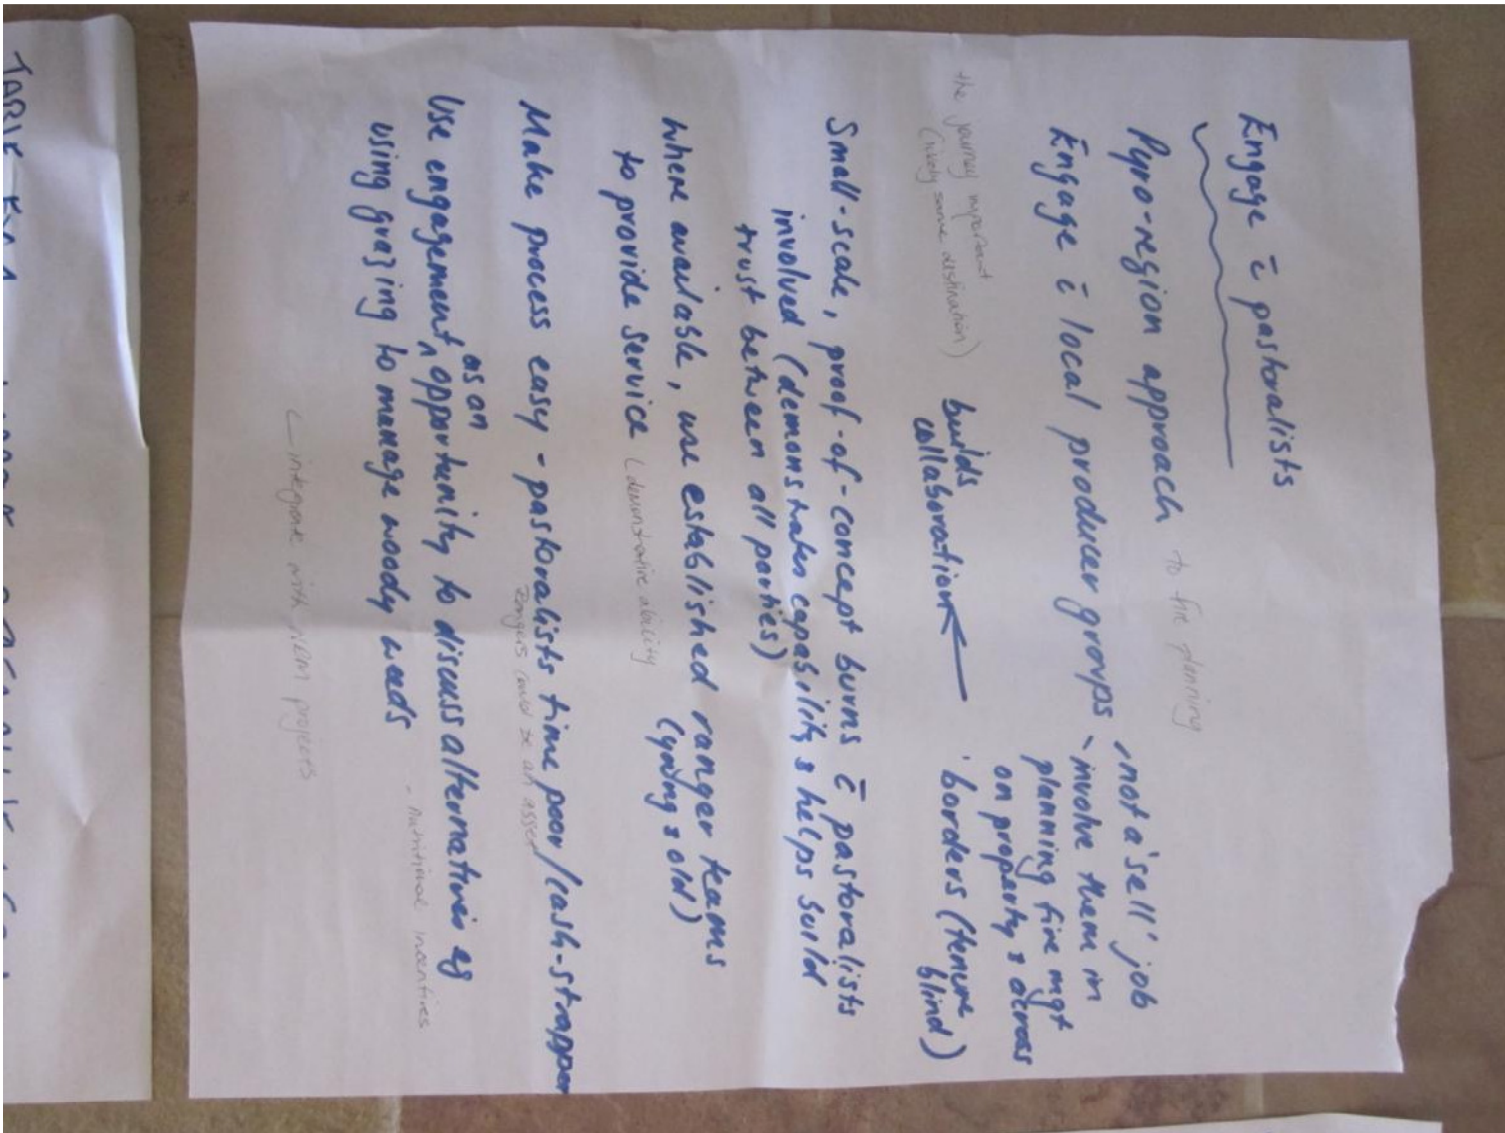 Engage c̄ pastoralists
Pyro-region approach to fire planning
Engage c̄ local producer groups
- not a 'sell' job
- involve them in
planning fire mgt
on property & across
borders (tenure
blind)
the journey important
(likely same destination)
builds
collaboration
Small-scale, proof-of-concept burns c̄ pastoralists
involved (demonstrates capability & helps build
trust between all parties)
where available, use established ranger teams
(young & old)
to provide service (demonstrative ability
Make process easy - pastoralists time poor/cash-strapped
Rangers could be an asset
as an
Use engagement ^ opportunity to discuss alternatives eg
using grazing to manage woody weeds
- Nutritional incentives.
integrate with NRM projects